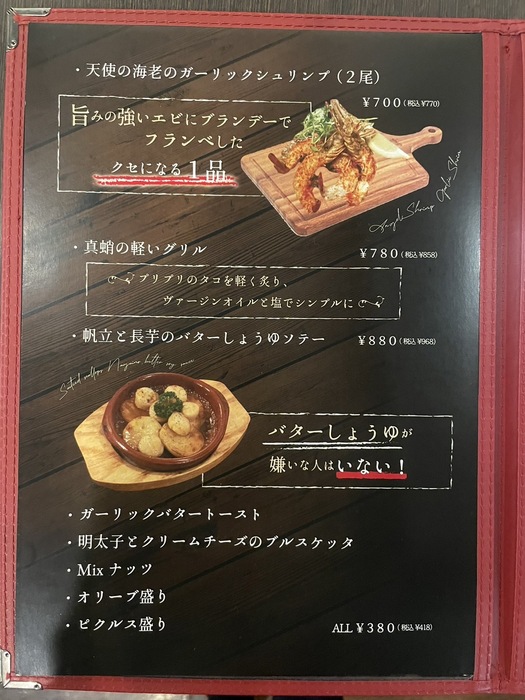 ・天使の海老のガーリックシュリンプ(2尾)
¥700(税込 ¥770)
旨みの強いエビにブランデーで
フランベした
クセになる1品
・真蛸の軽いグリル
¥780(税込 ¥858)
プリプリのタコを軽く炙り、
ヴァージンオイルと塩でシンプルに
・帆立と長芋のバターしょうゆソテー
¥880(税込 ¥968)
バターしょうゆが
嫌いな人はいない!
・ガーリックバタートースト
・明太子とクリームチーズのブルスケッタ
・Mix ナッツ
・オリーブ盛り
・ピクルス盛り
ALL ¥380(税込 ¥418)